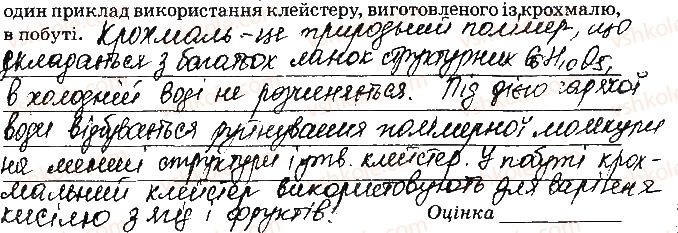 один приклад використання клейстеру, виготовленого із,крохмалю,
в побуті. Крохмаль - це природний полімер, що
складається з багатьох ланок структурних C6H10O5,
в холодній воді не розчиняється. Під дією гарячої
води відбувається руйнування полімерної молекули
на менші структури і утв. клейстер. У побуті крох-
мальний клейстер використовують для варіння
киселю з ягід і фруктів! Оцінка